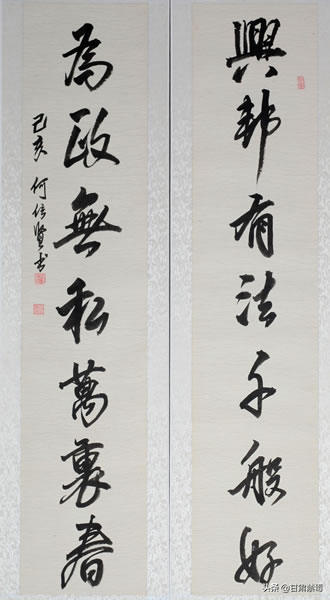 興邦有法千般好
為政無私萬裏春
己亥 何信賢书
头条 @甘肃禁毒